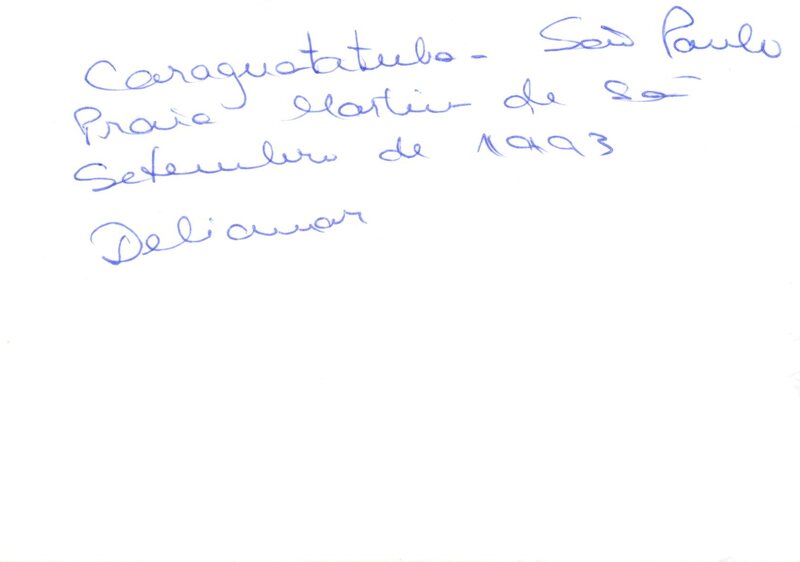 Caraguatatuba - São Paulo
Praia Martin de Sá
Setembro de 1993
Deliamar